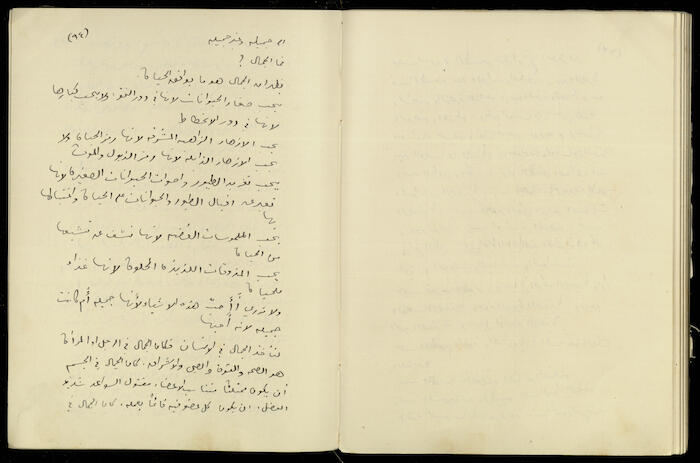 (٩٤)
الى جميله وغير جميله
فما الجمال ؟
فقلت ان الجمال هو ما يوافق الحياة.
يحب صغار الحيوانات لانها في دور النمو، ولا يحب كبارها
لانها في دور الانحطاط
يحب الازهار الزاهية المشرقة لانها رمز الحياة ولا
يحب الازهار الذابلة لانها رمز الذبول والموت
يحب تغريد الطيور واصوات الحيوانات الصغيرة لانها
تعبر عن اقبال الطيور والحيوانات على الحياة واغتباطها
بها
يحب الملموسات الغضة لانها تشف عن تشبعها
من الحياة
يحب المذوقات اللذيذة الحلوة لانها غذاء
للحياة
ولا ندري أأحب هذه الاشياء لأنها جميله أم كانت
جميله لانه أحبها
لنأخذ الجمال في الانسان فكان الجمال في الرجل او المرأة
هو الصحة والقوة والصبى والاشراق. كان الجمال في الجسم
أن يكون ممتلئاً متناسب الاعضاء، مفتول السواعد شديد
العضل، ان يكون كل عضو فيه قائماً بعمله. كان الجمال في